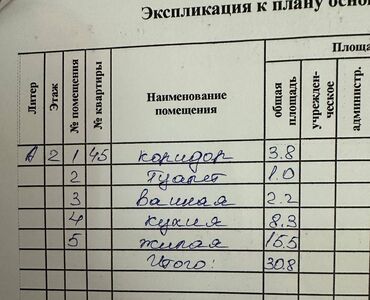 Экспликация к плану осно
Площа
Литер
Этаж
№ помещения
№ квартиры
Наименование
помещения
общая
площадь
учрежден-
ческое
администр.
А 2 1 45 коридор 3.8
2 туалет 1.0
3 ванная 2.2
4 кухня 8.3
5 жилая 15.5
Итого: 30.8